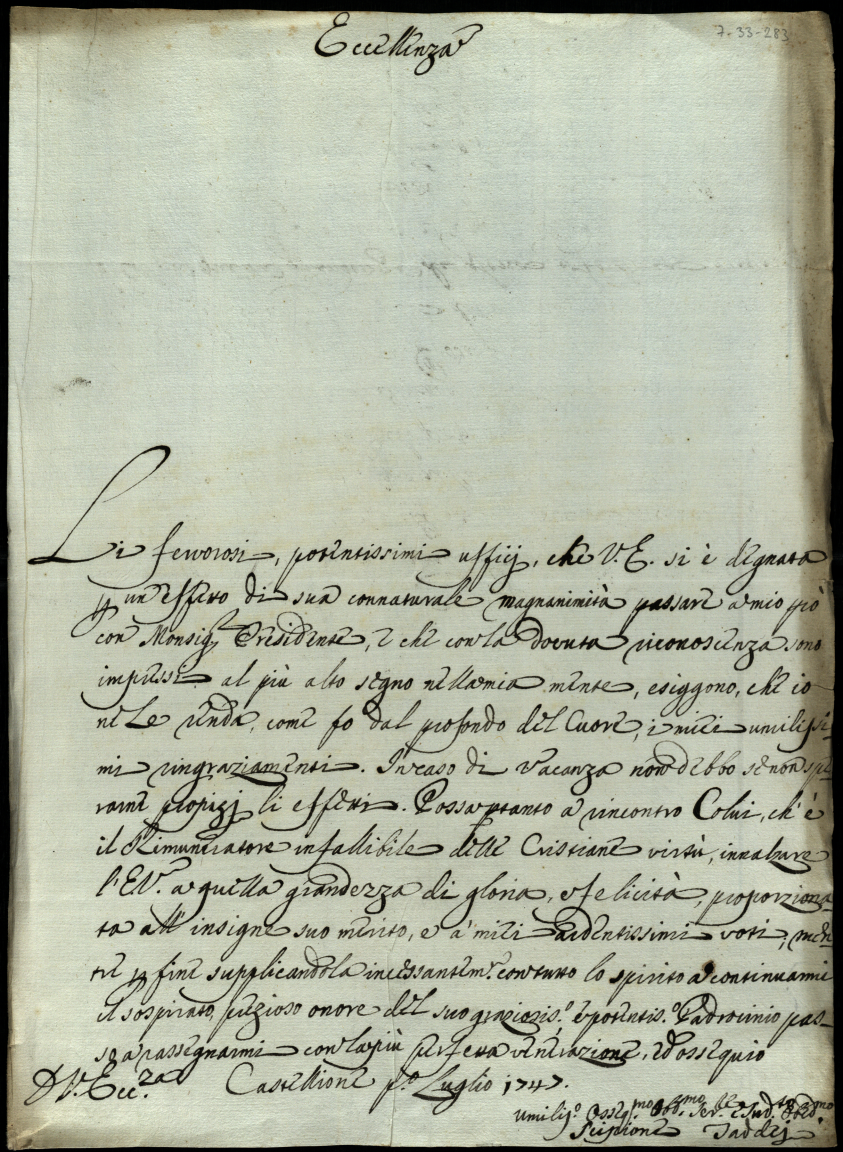 Eccellenza
7-33-283
Li fervorosi, potentissimi ufficij, che V. E. si è degnata
p un'effetto di sua connaturale magnanimità passare a mio prò
con Monsig.r Presidente, e che con la dovuta riconoscenza sono
impressi al più alto segno nella mia mente, esiggono, che io
ne Le renda, come fo dal profondo del Cuore, i miei umilissi-
mi ringraziamenti. In caso di vacanza non debbo se non spe-
rarne propizj li effetti. Possa ptanto a rincontro Colui, ch'è
il Rimuneratore infallibile delle Cristiane virtù, innalzare
l'E.V. a quella grandezza di gloria, e felicità, proporziona-
ta all'insigne suo merito, e a' miei ardentissimi voti, men
tre p fine supplicandola incessantem.e con tutto lo spirito a continuarmi
il sospirato, prezioso onore del suo graziosis.o, e potentis.o Padrocinio pas-
so a rassegnarmi con la più perfetta venerazione, ed ossequio
D. V. Ecc.za Castellione p.o Luglio 1747.
Umilis.o Osseq.mo Obb.mo Ser.re e Sud.to Obed.mo
Scipione Taddej